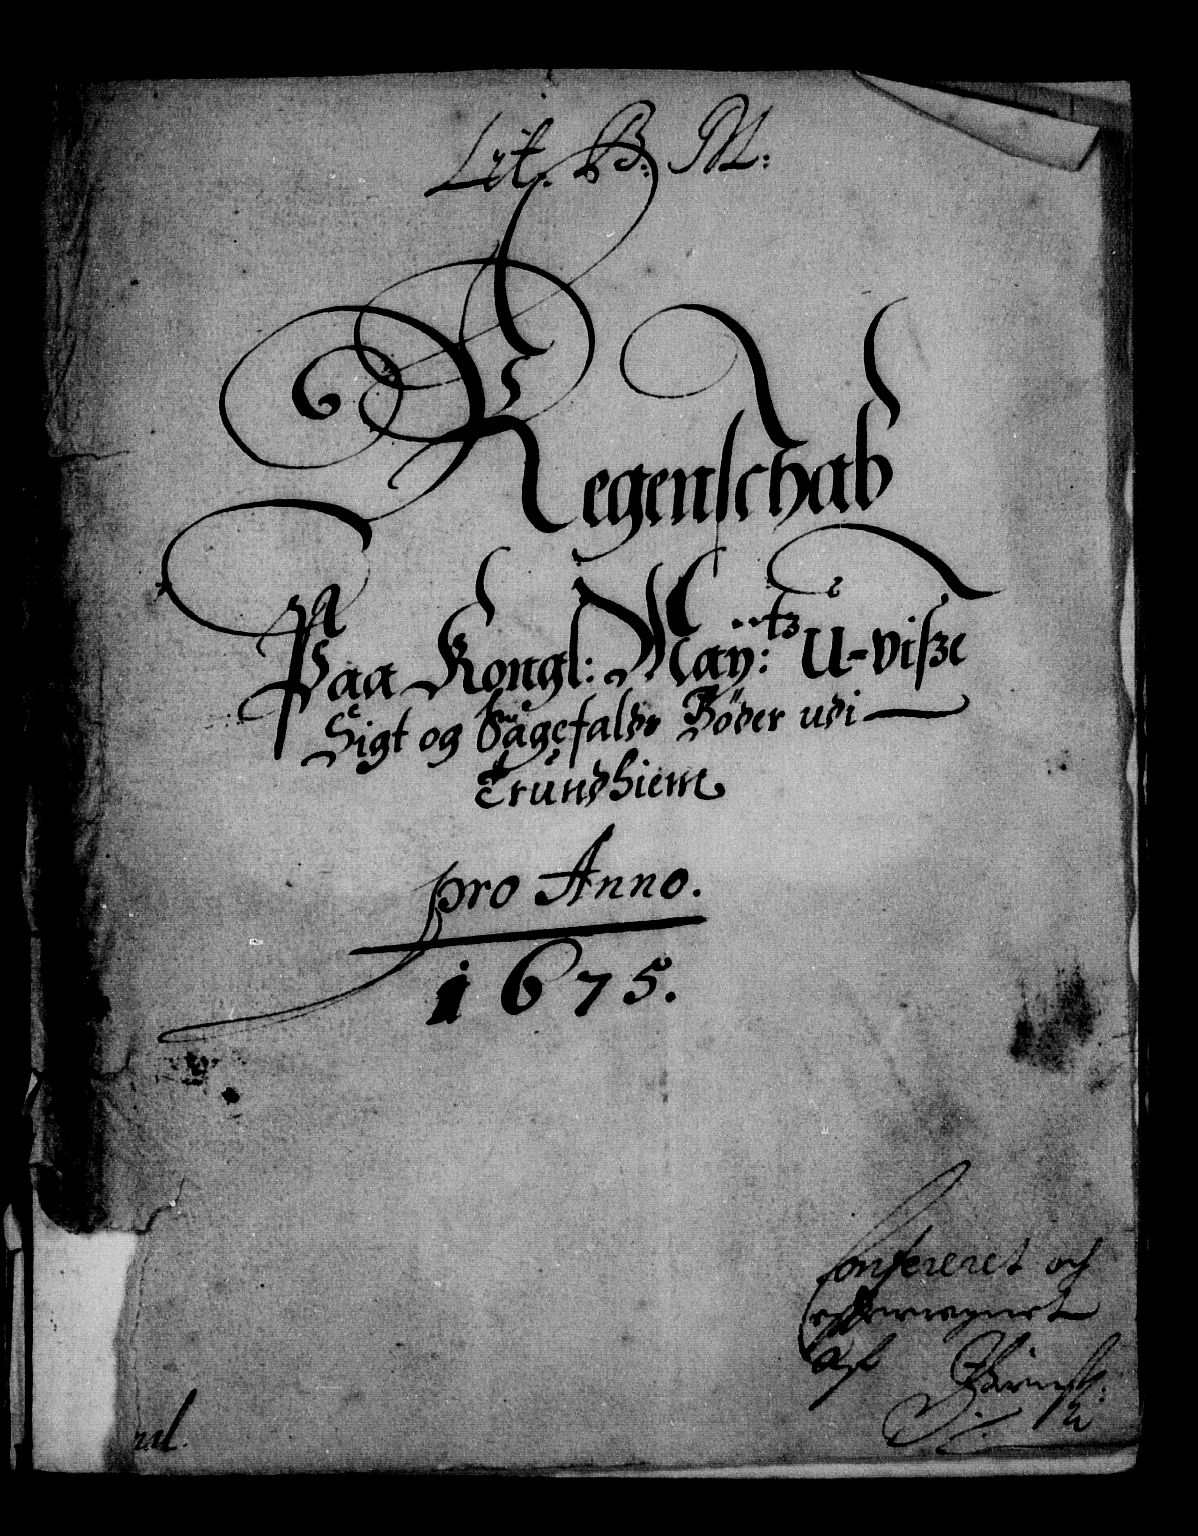 Lit. B: M:
Regenschab
Paa Kongl: Maÿ:tz U-visze
Sigt og Sagefalds Böder udi
Trundhiem
pro Anno.
1675.
Confereret och
efterregnet
af